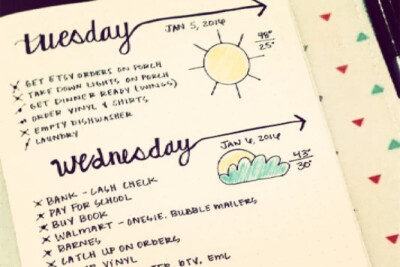 tuesday
JAN 5, 2016
48°
25°
GET ETSY ORDERS ON PORCH
TAKE DOWN LIGHTS ON PORCH
GET DINNER READY (WINGS)
ORDER VINYL & SHIRTS
EMPTY DISHWASHER
LAUNDRY
Wednesday
JAN 6, 2016
43°
30°
BANK - CASH CHECK
PAY FOR SCHOOL
BUY BOOK
WALMART - ONESIE, BUBBLE MAILERS
BARNES
CATCH UP ON ORDERS
VINYL
BTV, EML